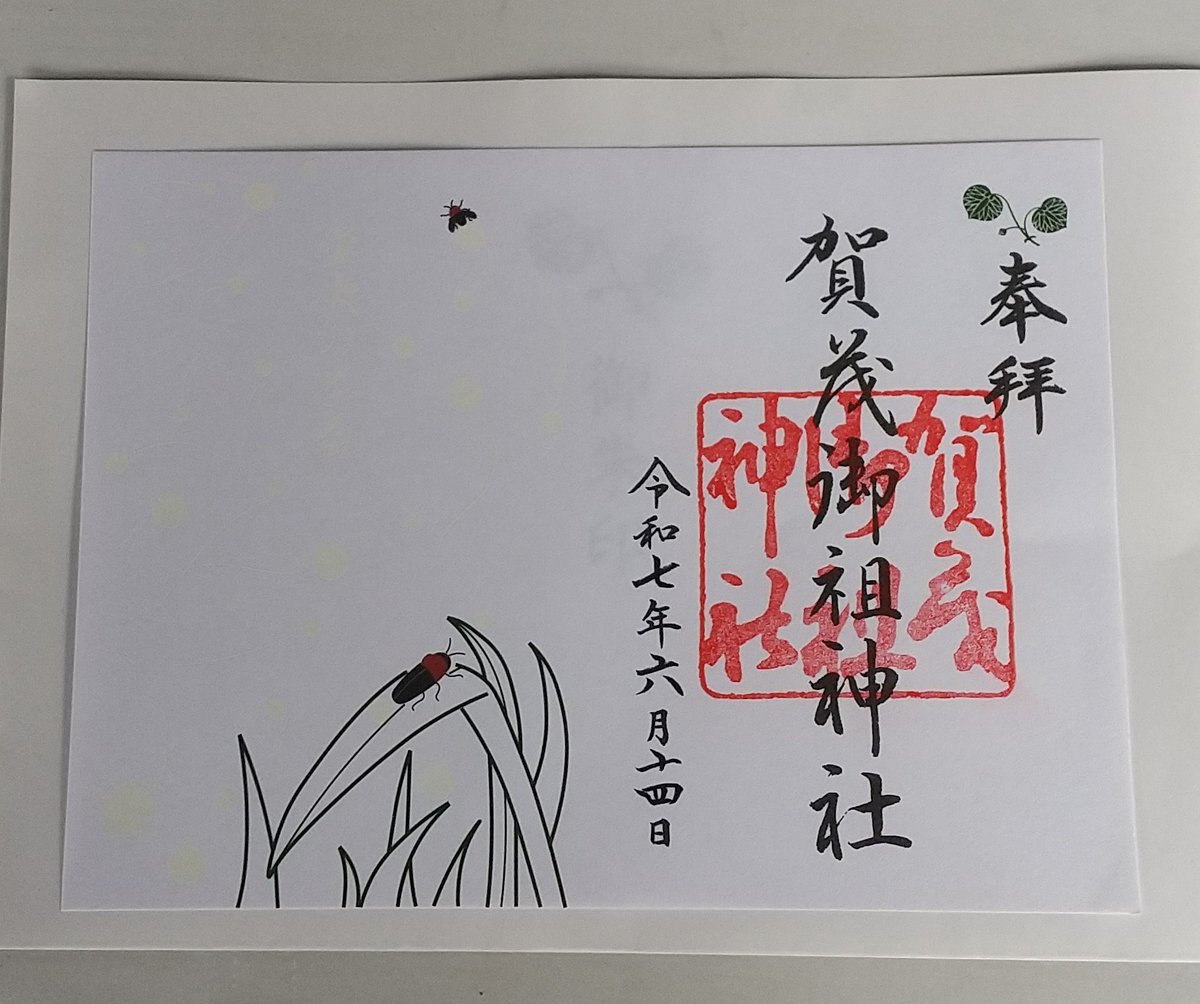 奉拝
賀茂御祖神社
賀茂
御祖
神社
令和七年六月十四日